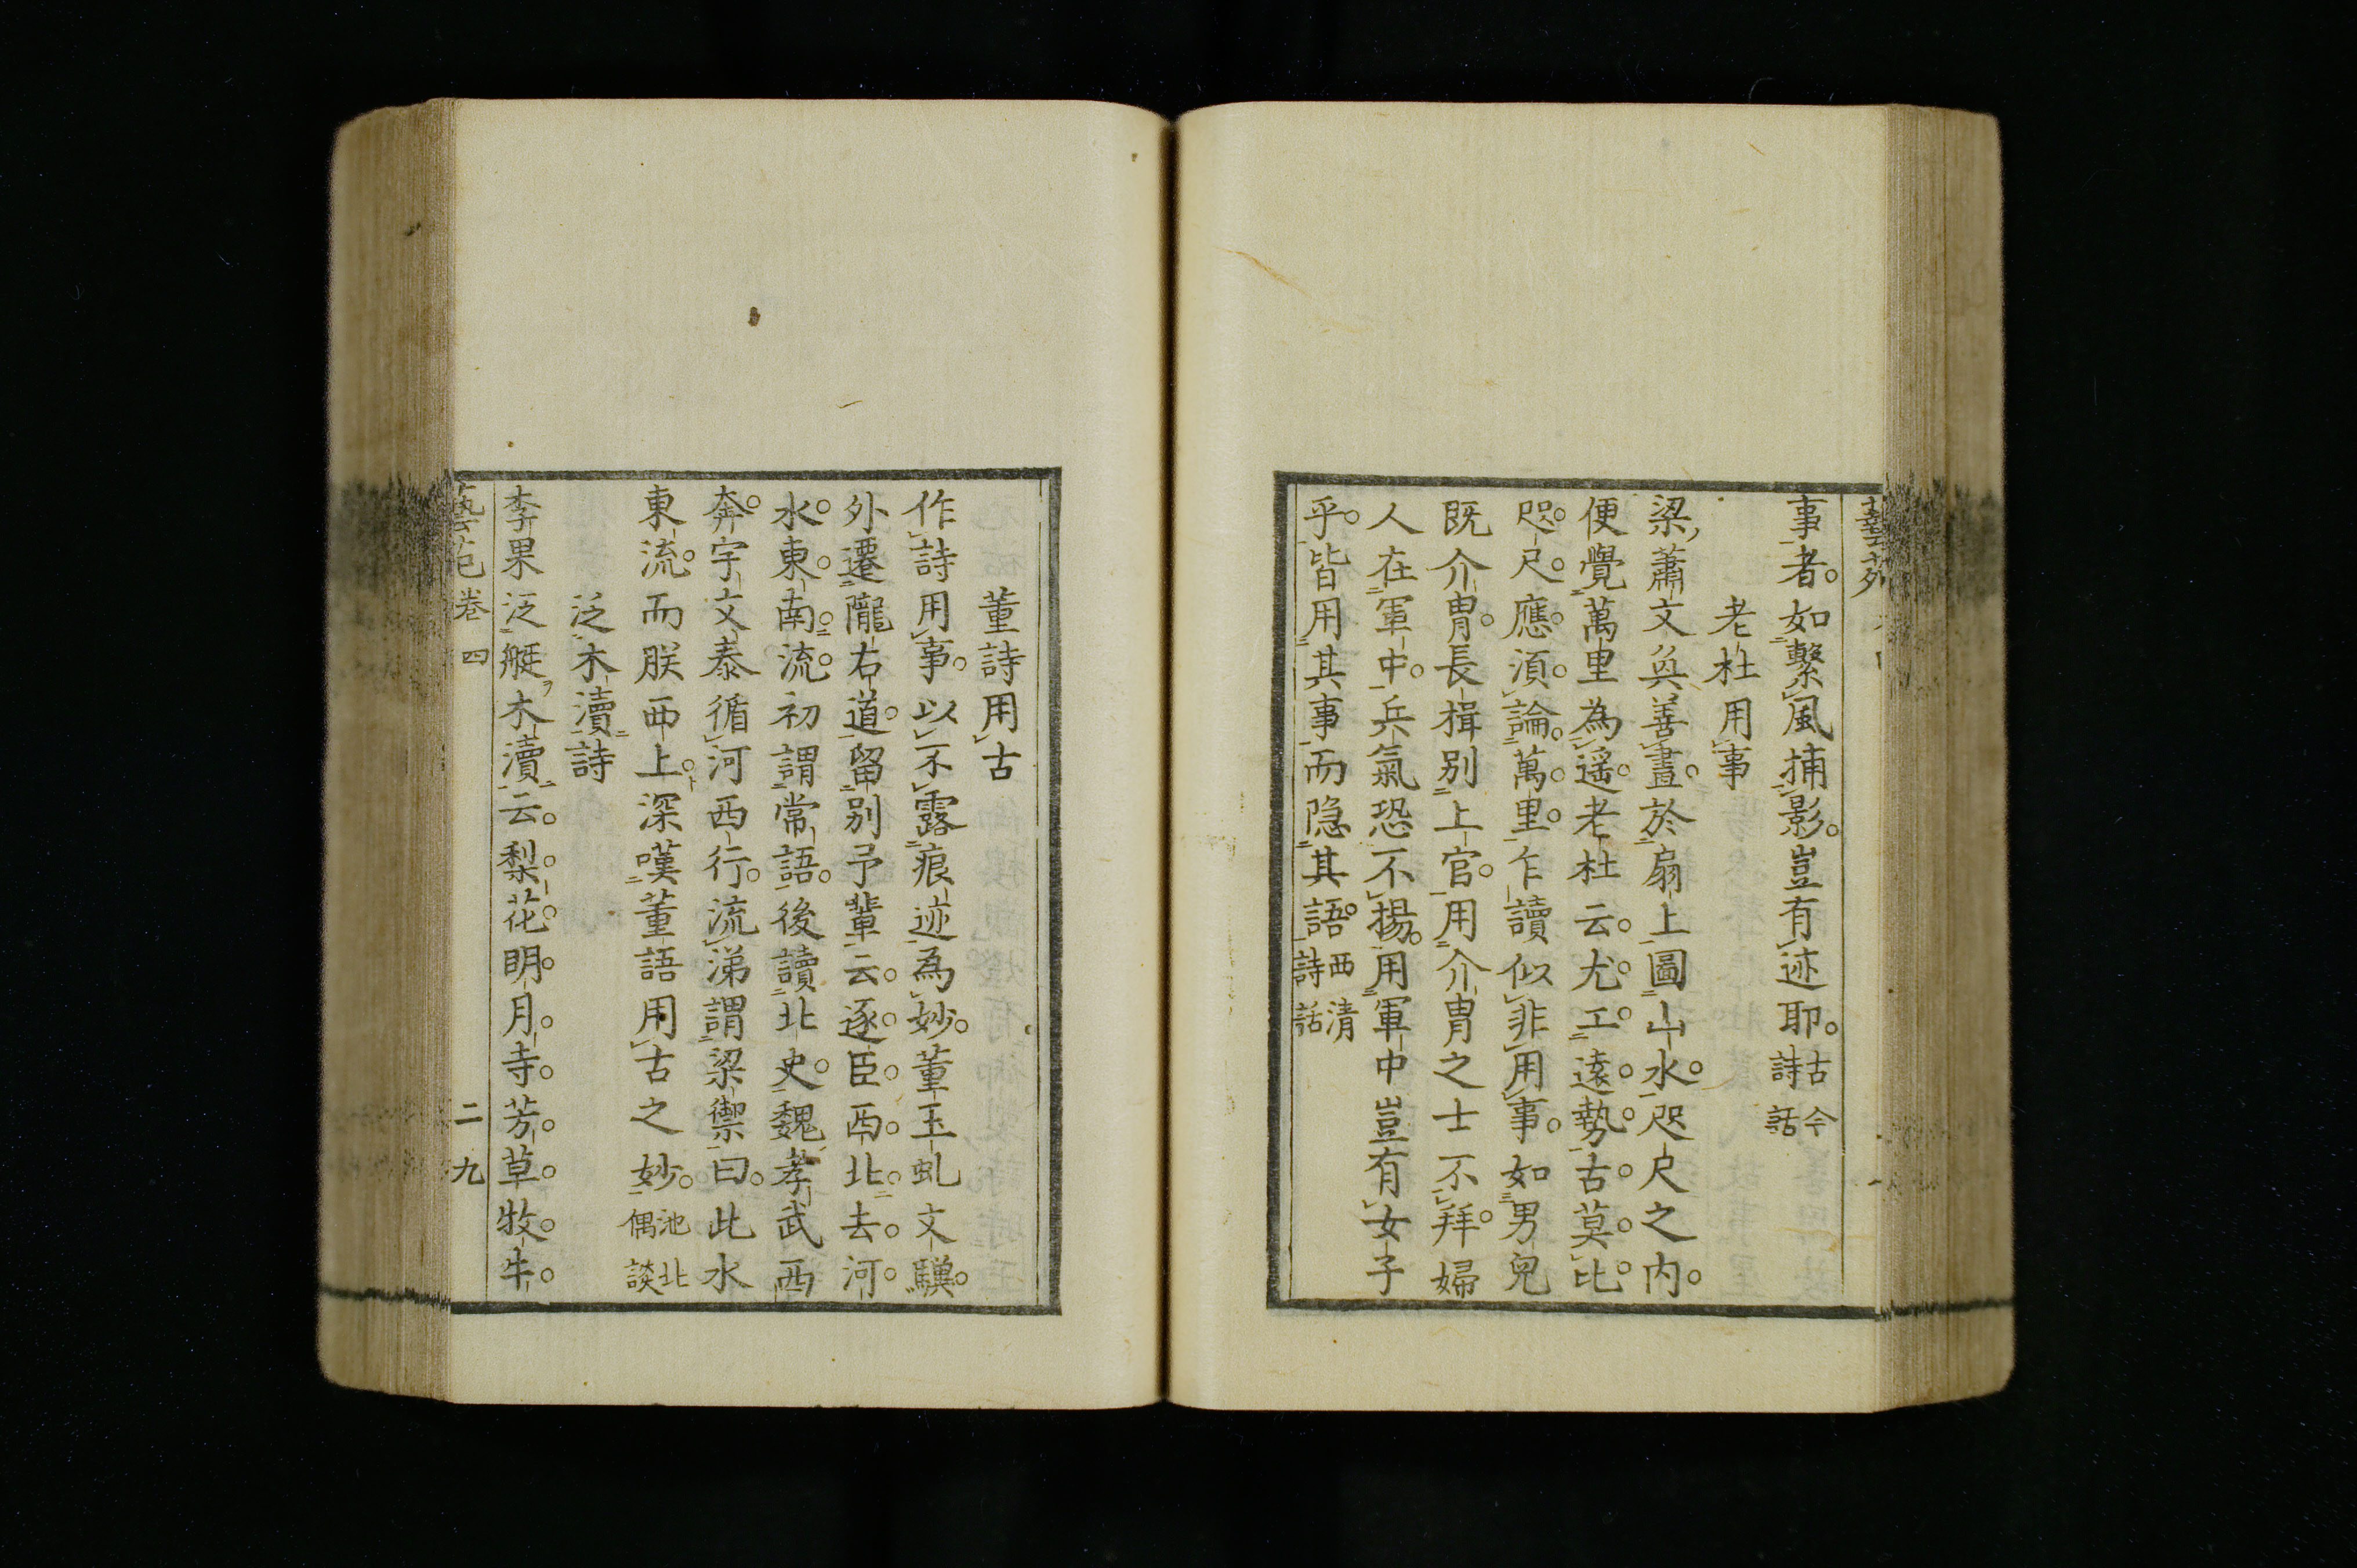 藝苑
事者。如繫風捕影。豈有迹耶。古今詩話
老杜用事
梁蕭文奐善畫。於扇上圖山水。咫尺之内。
便覺萬里為遥。老杜云。尤工遠勢古莫比。
咫尺應湏論萬里。乍讀似非用事。如男兒
既介冑。長揖别上官。用介冑之士不拜。婦
人在軍中。兵氣恐不揚。用軍中豈有女子
乎。皆用其事而隐其語。西清詩話
董詩用古
作詩用事。以不露痕迹為妙。董玉虬文驥。
外遷隴右道。留别予輩云。逐臣西北去。河
水東南流。初謂常語。後讀北史。魏孝武西
奔。宇文泰循河西行。流涕謂梁禦曰。此水
東流。而朕西上。深嘆董語用古之妙。池北偶談
泛木瀆詩
李果泛艇木瀆云。梨花明月寺。芳草牧牛。
藝苑卷四 二九